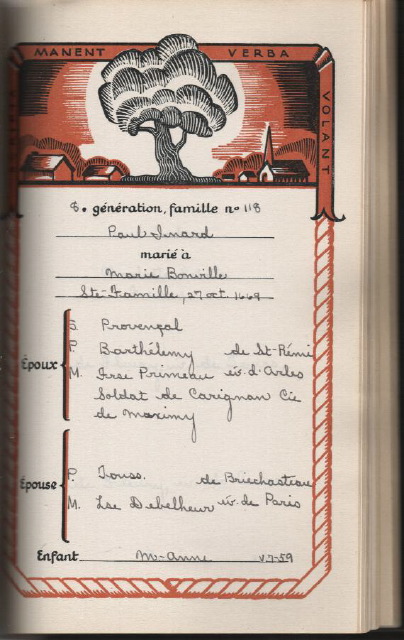 MANENT VERBA VOLANT
8. génération, famille nº 118
Paul Inard
marié à
Marie Bonville
Ste-Famille, 27 oct. 1669
S. Provençal
Époux P. Barthélemy de St-Rémi
M. Frse Primeau év. d'Arles
Soldat de Carignan Cie
de Maximy
Épouse P. Touss. de Briechasteau
M. Lse Debelheur év. de Paris
Enfant M-Anne V.7-59